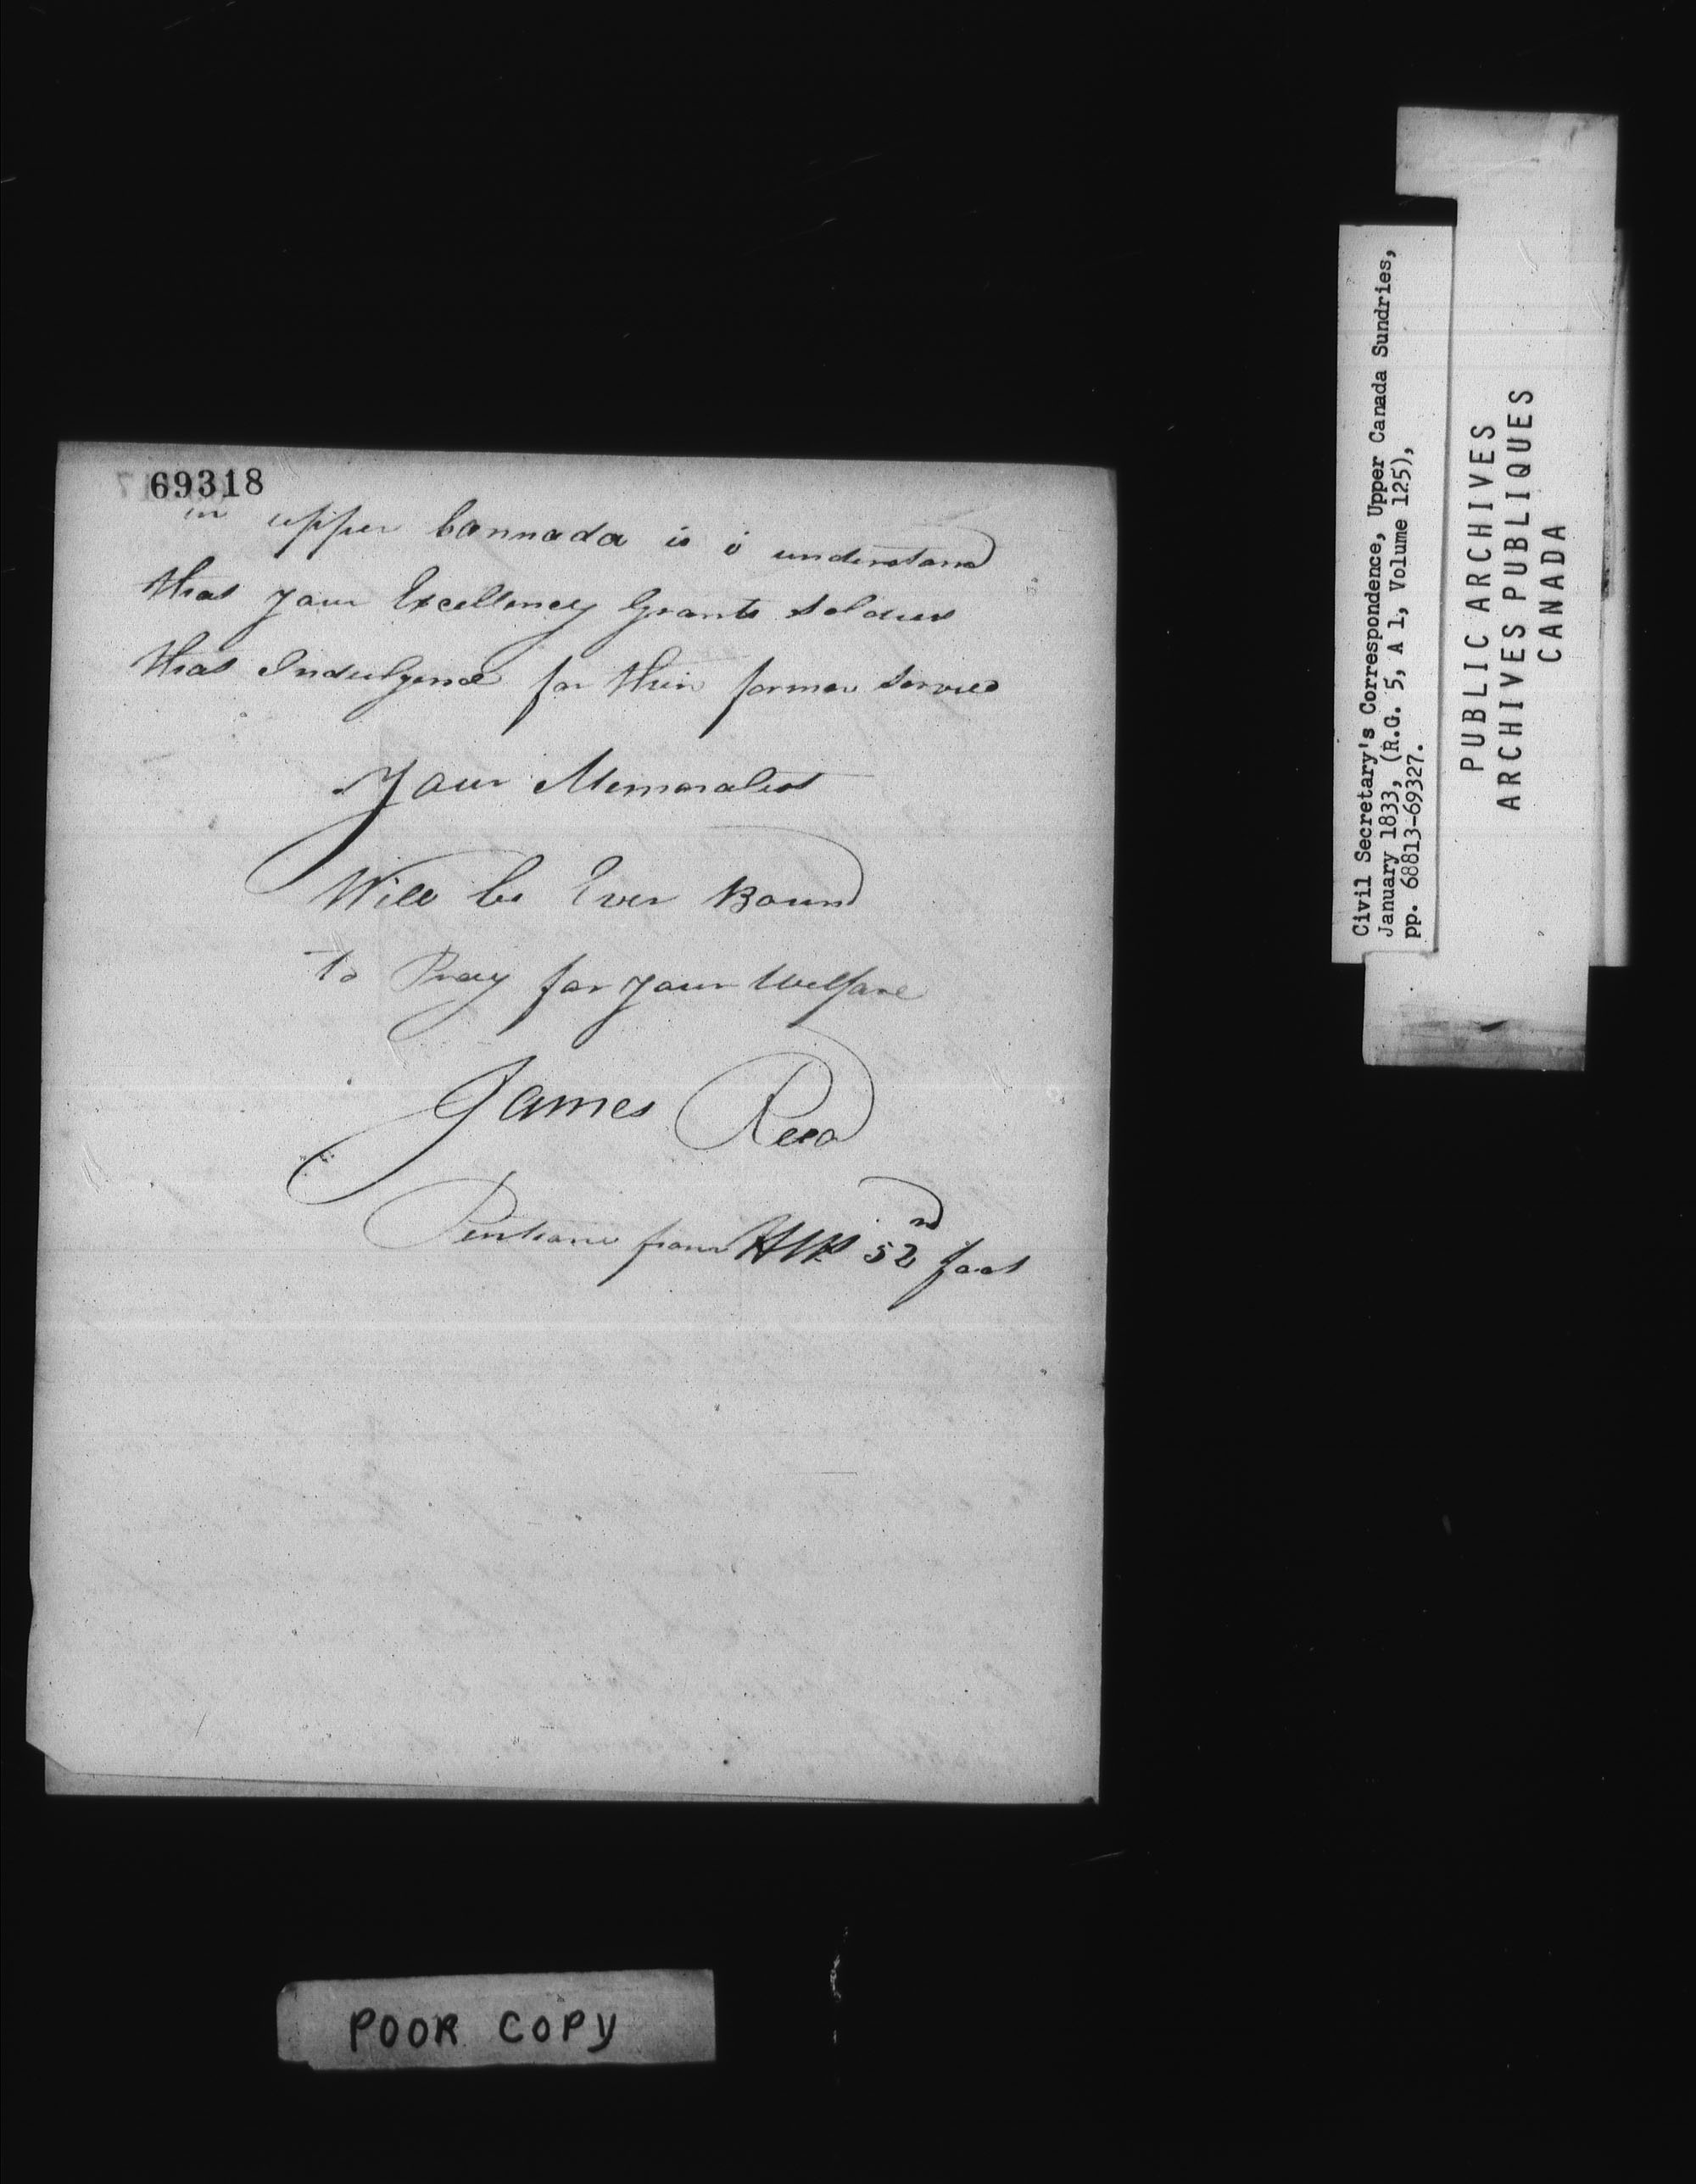 69318
in upper Cannada is i understand
that your Excellency Grants soldiers
that Indulgence for their former Service
Your Memoralist
Will be Ever Bound
to Pray for your Welfare
James Reed
from 52nd foot
Civil Secretary's Correspondence, Upper Canada Sundries,
January 1833, (R.G. 5, A 1, Volume 125),
pp. 68813-69327.
PUBLIC ARCHIVES
ARCHIVES PUBLIQUES
CANADA
POOR COPY